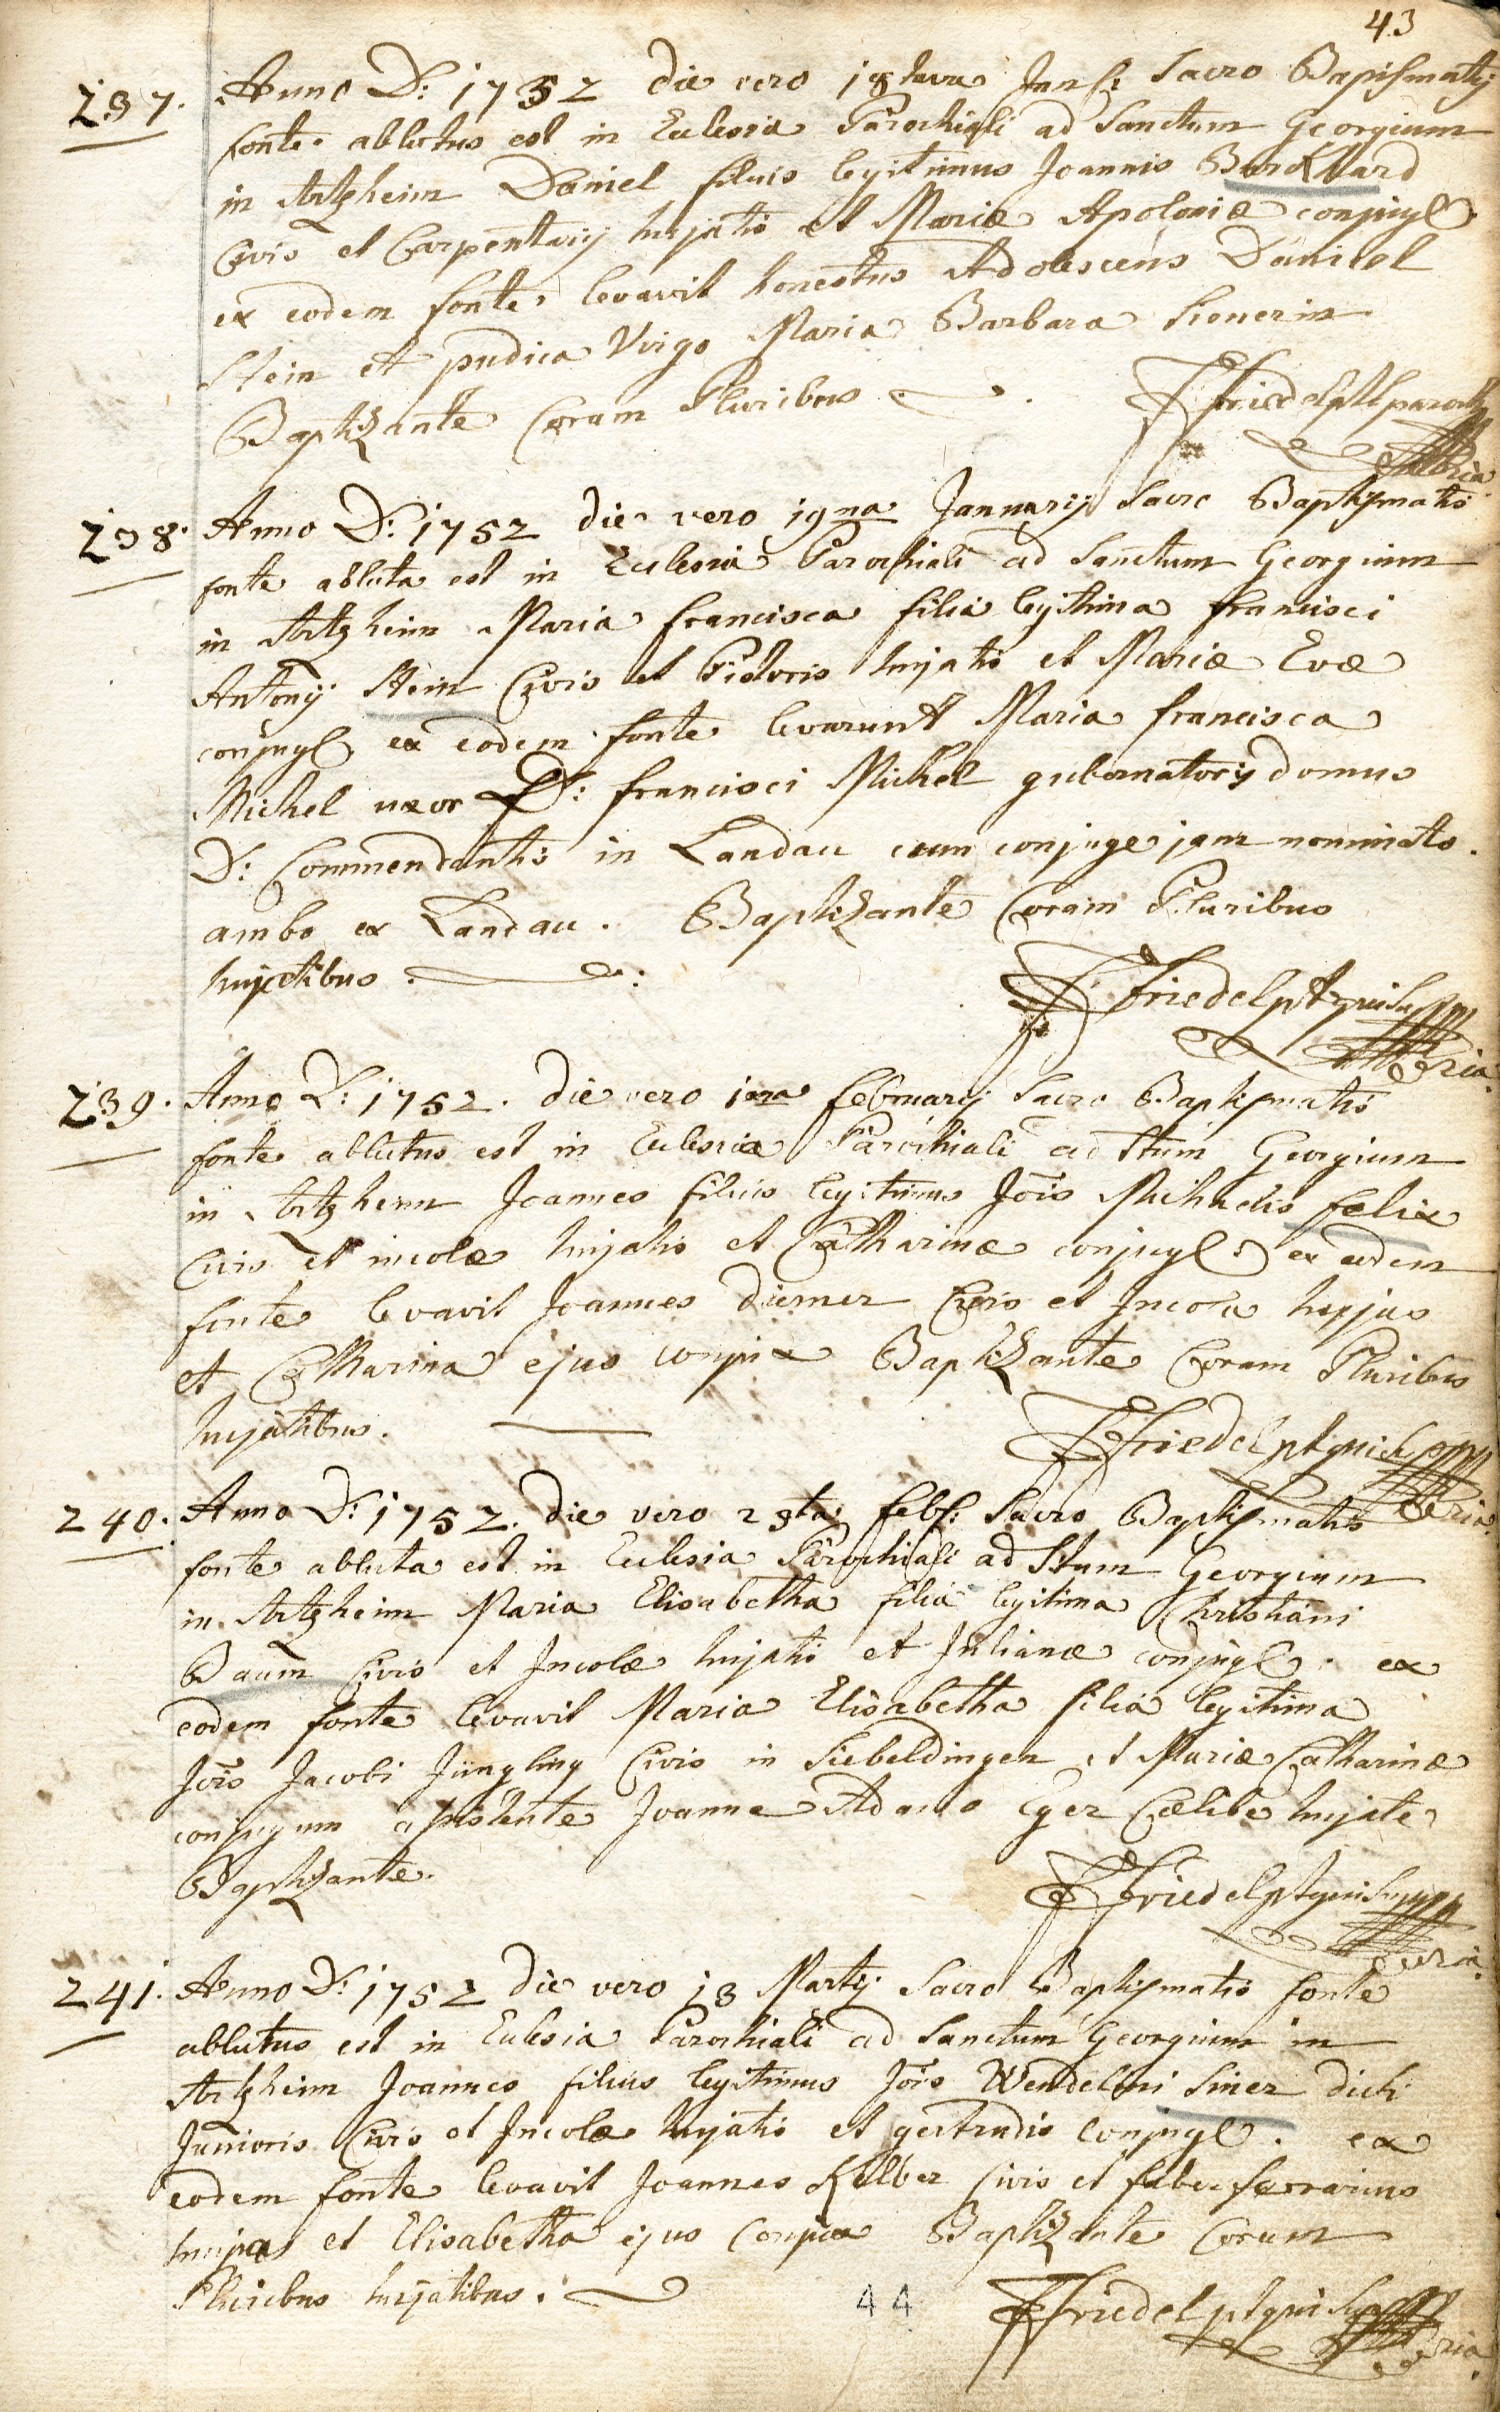 43
237. Anno D: 1752 die vero 18tava Jan: Sacro Baptismatis
fonte ablutus est in Eclesia Parochiali ad Sanctum Georgium
in Artzheim Daniel filius legitimus Joannis Burckhard
Civis et Carpentarij hujatis et Mariæ Apoloniæ conjugū
ex eodem fonte levavit honestus Adolescens Daniel
Stein et pudica Virgo Maria Barbara
Baptizante Coram Pluribus. Friedel p.t. paroch
238. Anno D: 1752 die vero 19na Januarij Sacro Baptismatis
fonte abluta est in Eclesia Parochiali ad Sanctum Georgium
in Artzheim Maria Francisca filia legitima Francisci
Antonij Stein Civis et Pistoris hujatis et Mariæ Evæ
conjugū ex eodem fonte levarunt Maria Francisca
Michel uxor D: Francisci Michel gubernatoris domus
D: Commendantis in Landau cum conjuge jam nominato.
ambo ex Landau. Baptizante Coram Pluribus
hujatibus. Friedel p.t. qui supra
239. Anno D: 1752. die vero 1ma Februarij Sacro Baptismatis
fonte ablutus est in Eclesia Parochiali ad Stum Georgium
in Artzheim Joannes filius legitimus Jōis Michaelis Fælix
Civis et incolæ hujatis et Catharinæ conjugū ex eodem
fonte levavit Joannes Diemer Civis et Incola hujas
et Catharina ejus conjux Baptizante Coram Pluribus
hujatibus. Friedel p.t. qui supra
240. Anno D: 1752. die vero Feb: Sacro Baptismatis
fonte abluta est in Eclesia Parochiali ad Stum Georgium
in Artzheim Maria Elisabetha filia legitima Christiani
Baum Civis et Incolæ hujatis et Julianæ conjugū. ex
eodem fonte levavit Maria Elisabetha filia legitima
Jōis Jacobi Jüngling Civis in Siebeldingen et Mariæ Catharinæ
conjugum assistente Joanne Adamo Eger Cælibe hujate
Baptizante. Friedel p.t. qui supra
241. Anno D: 1752 die vero 13 Martij Sacro Baptismatis fonte
ablutus est in Eclesia Parochiali ad Sanctum Georgium in
Artzheim Joannes filius legitimus Jōis Wendelini Siner dicti
Junioris Civis et Incolæ hujatis et gertrudis Conjugū. ex
eodem fonte levavit Joannes Kelber Civis et faber ferrarius
hujas et Elisabetha ejus Conjux Baptizante Coram
Pluribus hujatibus. Friedel p.t. qui supra
44